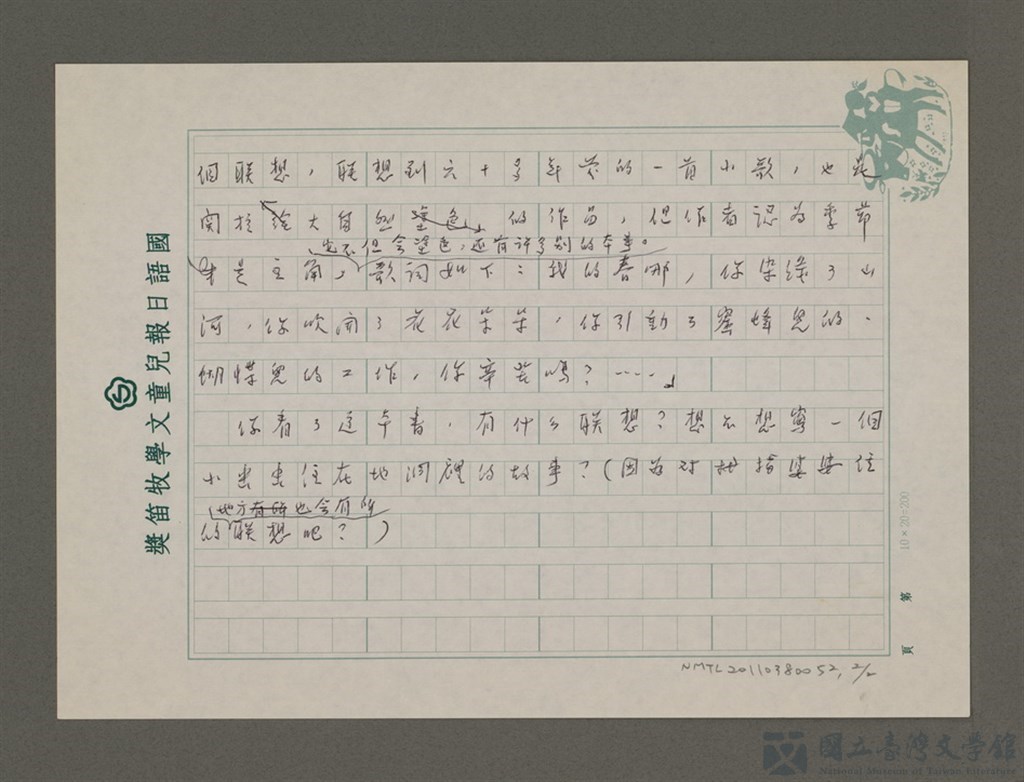 個联想，联想到六十多年前的一首小歌，也是
関於給大自然塗色」的作品，但作者認為季節
它不但会塗色，还有許多別的本事。
才是主角，歌詞如下：我的春哪，你染綠了山
河，你吹開了花花朵朵，你引動了蜜蜂兒的、
蝴蝶兒的工作，你辛苦嗎？……」
你看了這本書，有什么联想？想不想寫一個
小虫虫住在地洞裡的故事？（因为对拇指婆婆住
地方有時也会有所
的联想吧？）
國語日報兒童文學牧笛獎
10×20=200
第 頁
NMTL20110380052, 2/2
國立臺灣文學館
National Museum of Taiwan Literature